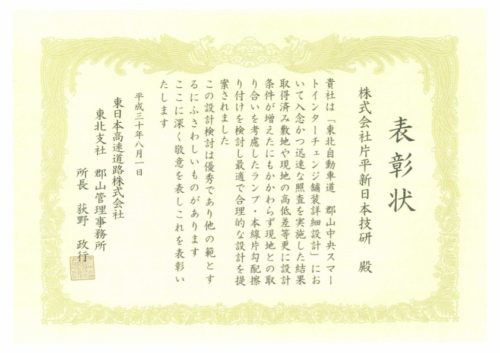 表彰状
株式会社片平新日本技研 殿
貴社は「東北自動車道 郡山中央スマー
トインターチェンジ舗装詳細設計」にお
いて入念かつ迅速な照査を実施した結果
取得済み敷地や現地の高低差等更に設計
条件が増えたにもかかわらず現地との取
り合いを考慮したランプ・本線片勾配擦
り付けを検討し最適で合理的な設計を提
案されました
この設計検討は優秀であり他の範とす
るにふさわしいものがあります
ここに深く敬意を表しこれを表彰い
たします
平成三十年八月一日
東日本高速道路株式会社
東北支社 郡山管理事務所
所長 荻野 政行